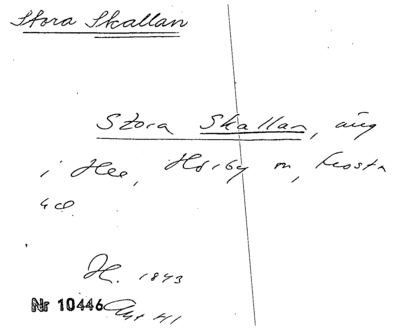 Stora Skallan
Stora Skallan, äng
i Hee, Hörby sn, Frosta
hd.
H. 1843
Nr 10446 Akt 41